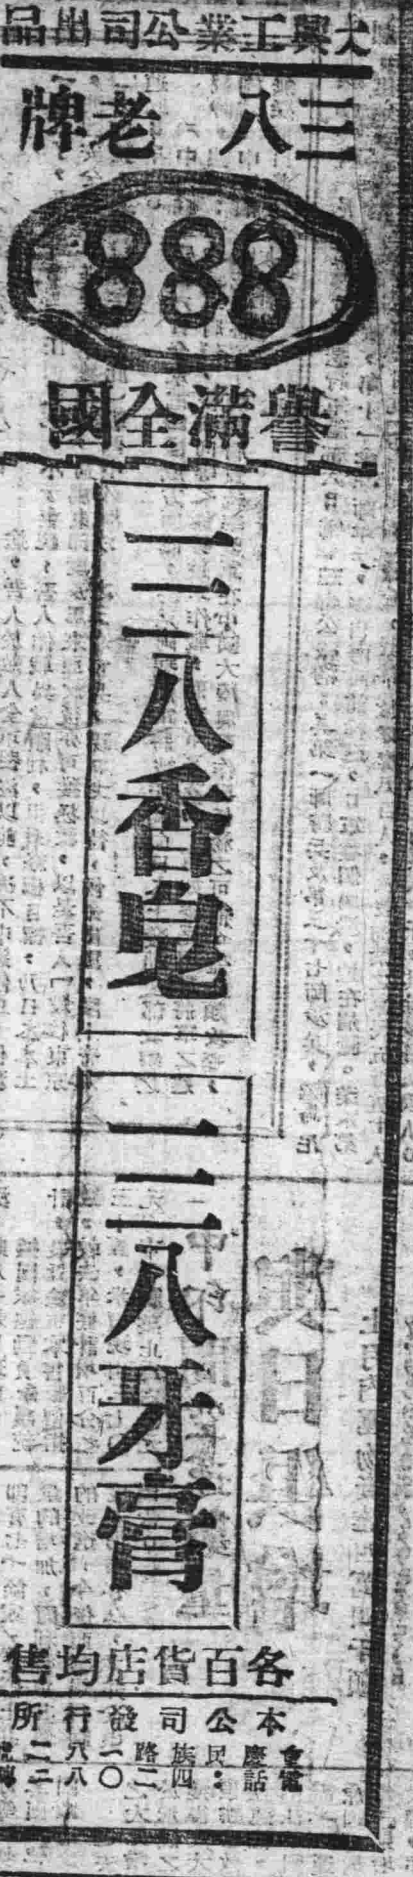 大興工業公司出品
三八老牌
888
譽滿全國
三八香皂
三八牙膏
各百貨店均售
本公司發行所
重慶民族路一
電話：四二〇八二